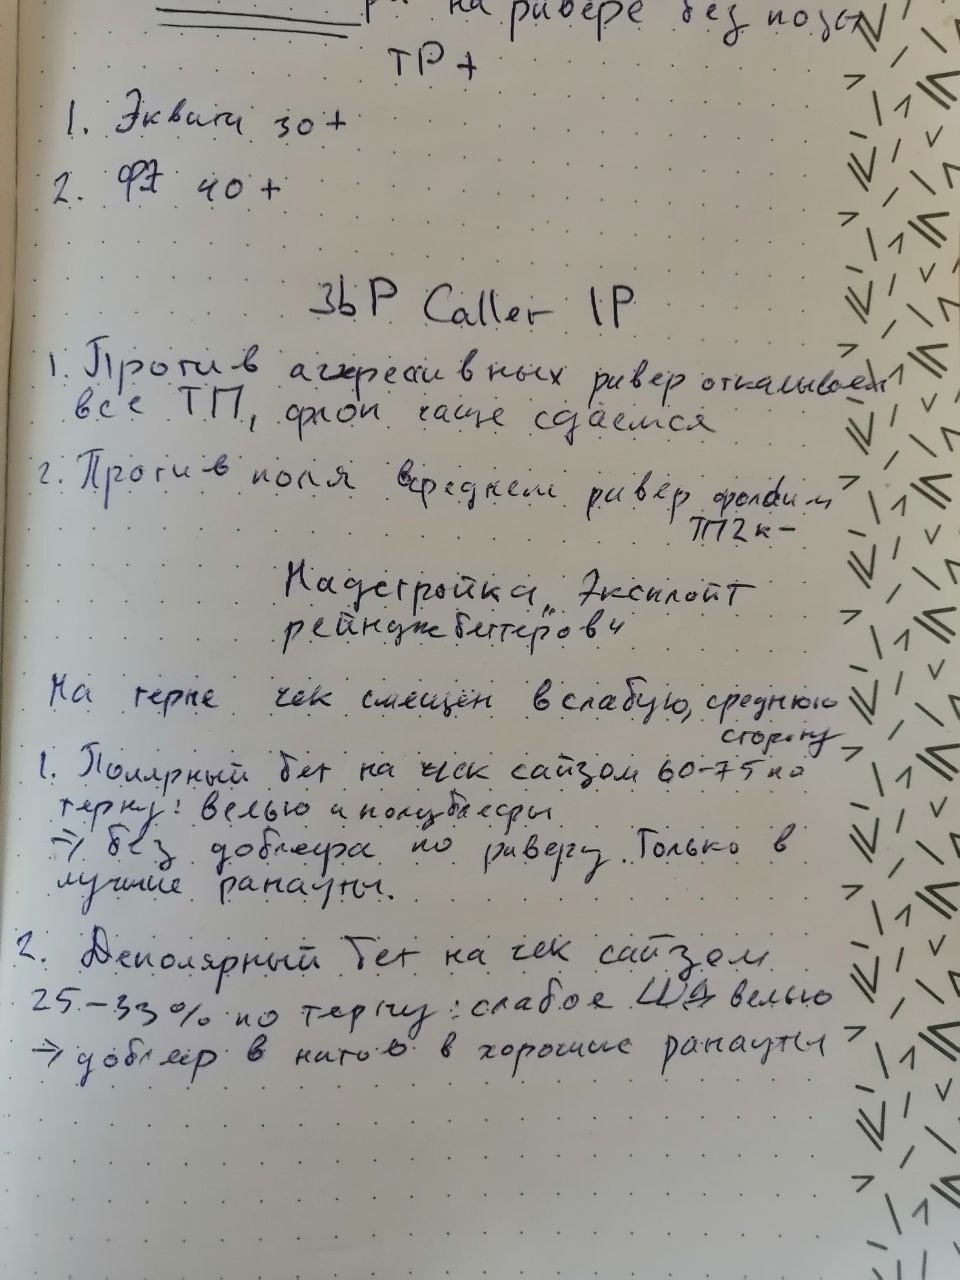 на ривере без позы
TP+
1. Эквити 30+
2. ФЭ 40+
3bP Caller IP
1. Против агрессивных ривер откалываем
все ТП, флоп чаще сдаемся
2. Против поля в среднем ривер фолдим
ТП2к-
Надстройка "Эксплойт
рейнджбеттеров"
На терне чек смещен в слабую, среднюю
сторону
1. Полярный бет на чек сайзом 60-75 по
терну: велью и полублефы
→ без доблефа по риверу. Только в
лучшие ранауты.
2. Деполярный бет на чек сайзом
25-33% по терну: слабое ШД велью
→ доблеф в натю в хорошие ранауты